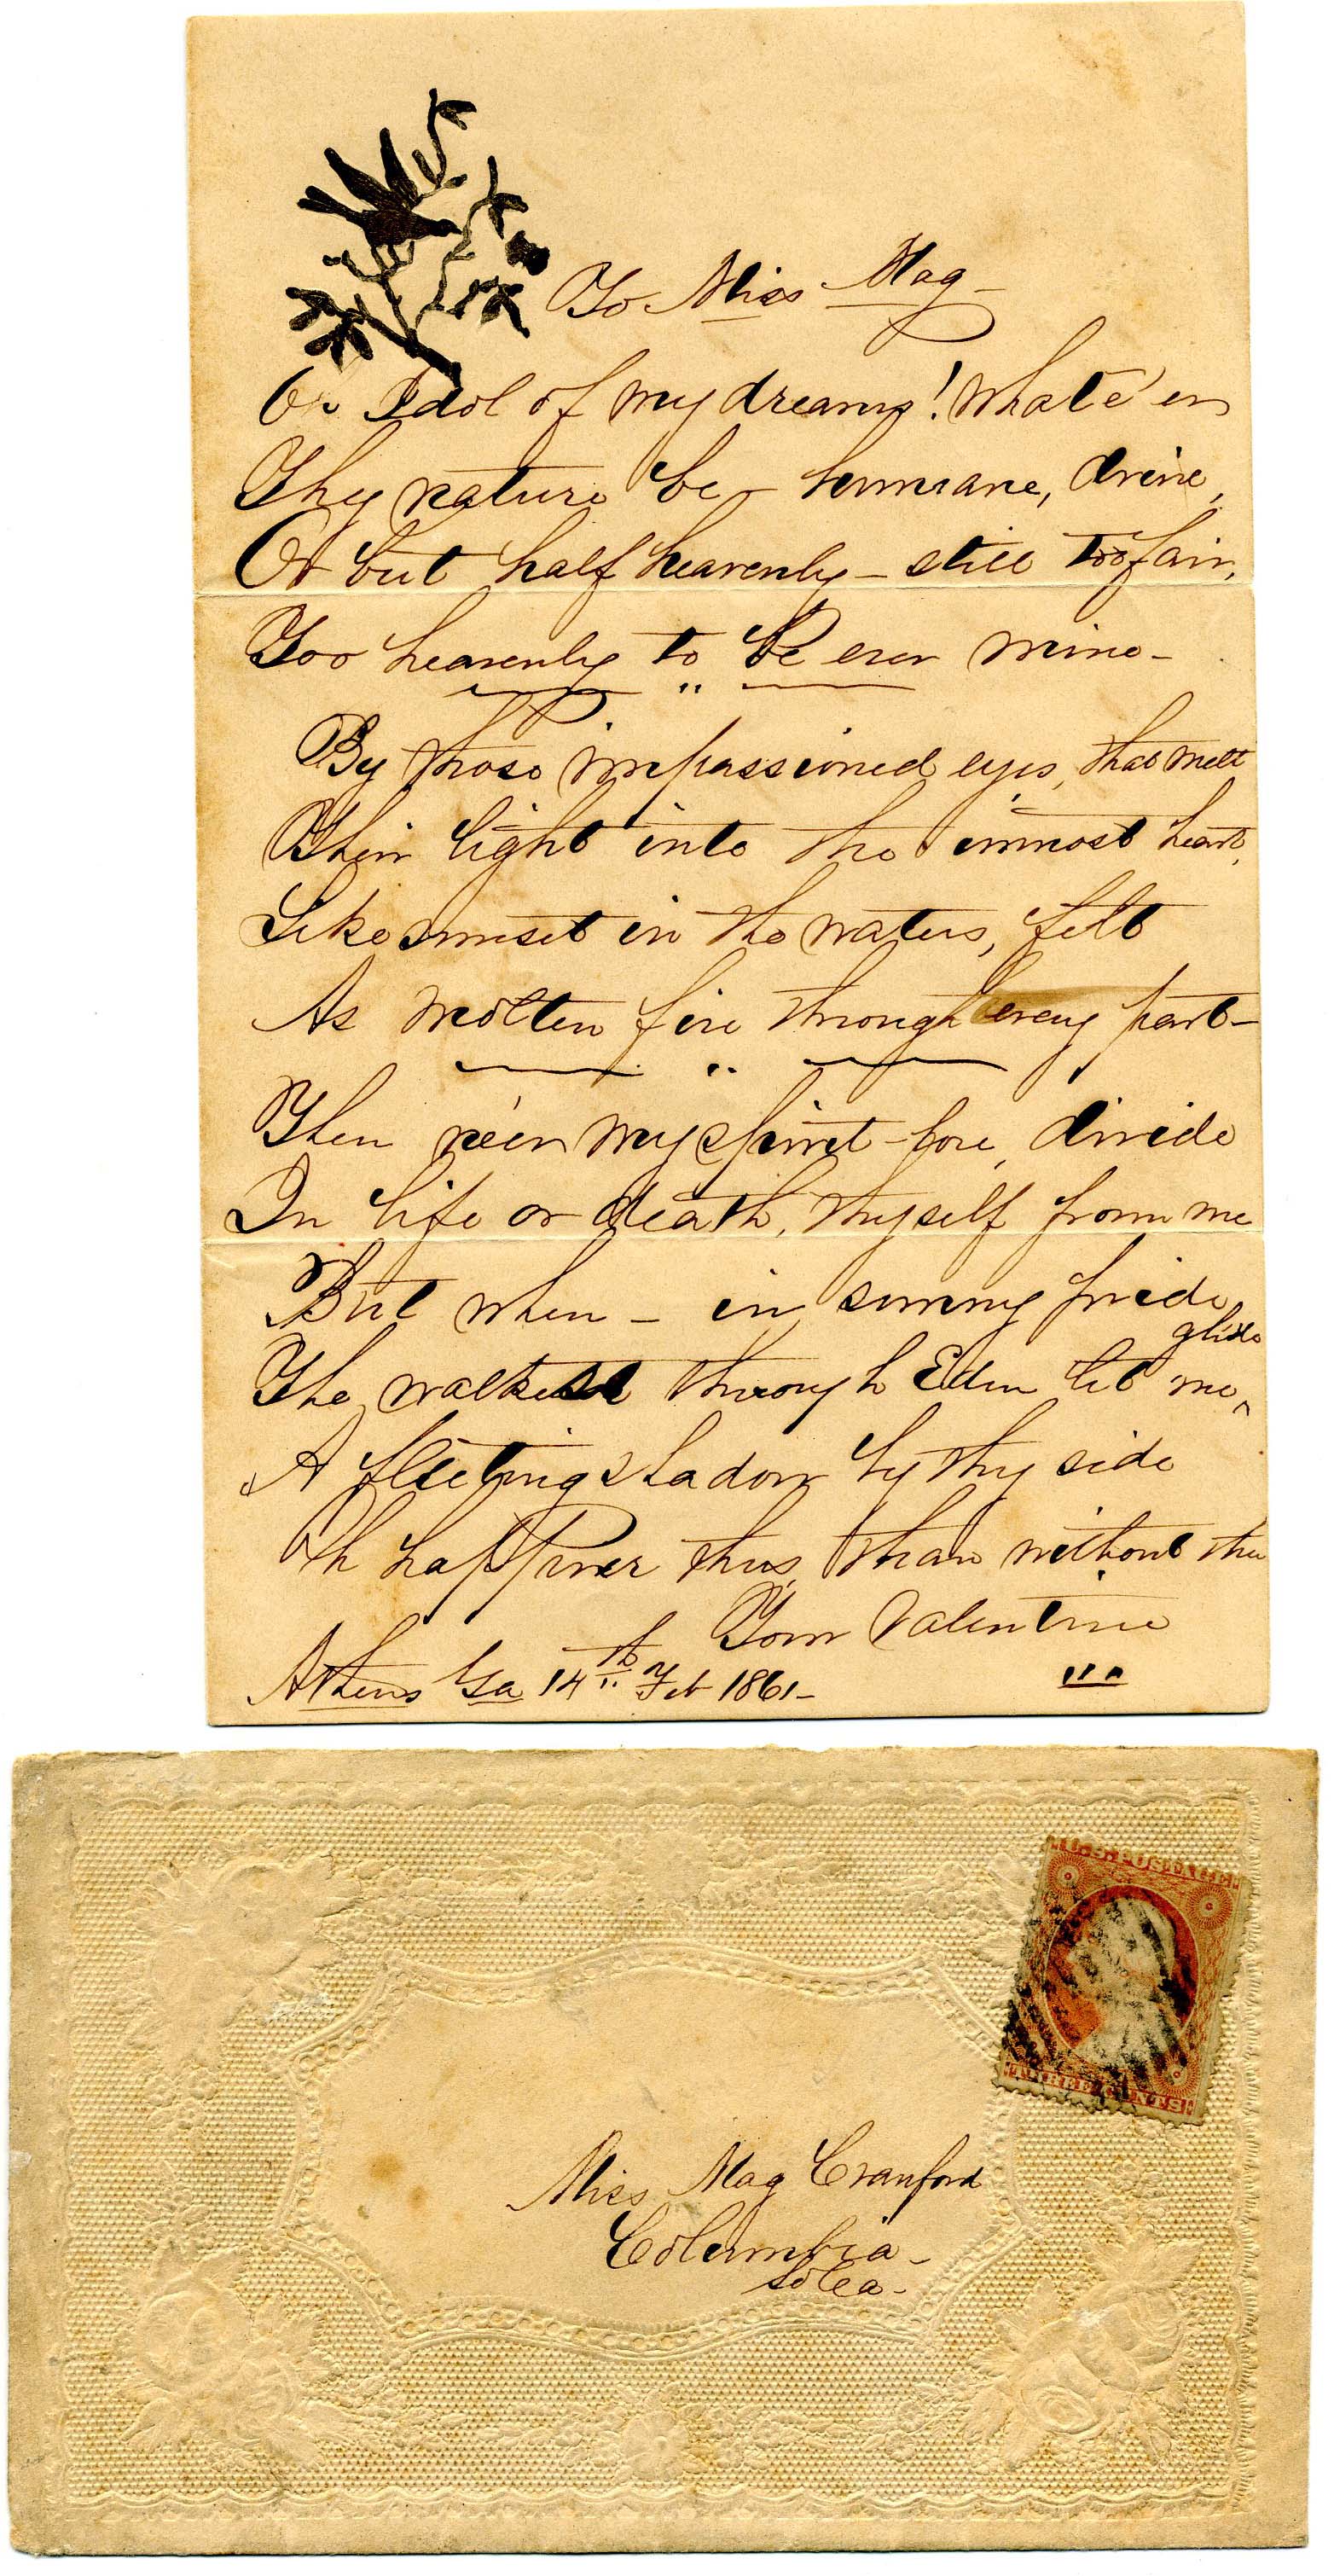 To Miss Mag
Oh Idol of my dreams! Whate'er
Thy nature be – humane, divine,
Or but half heavenly – still too fair,
Too heavenly to be ever mine –
By those impassioned eyes, that melt
Their light into the inmost heart,
Like sunset in the waters, felt
As molten fire through every part –
Then ne'er my spirit-love, divide
In life or death, thyself from me
But when – in sunny pride
glide
The walkest through Eden let me ^
A fleeting shadow by thy side
Oh happier thus than without thee
Your Valentine
Athens Ga 14th Feb 1861 –
U.S. POSTAGE
THREE CENTS
Miss Mag Cranford
Columbia –
So Ca –